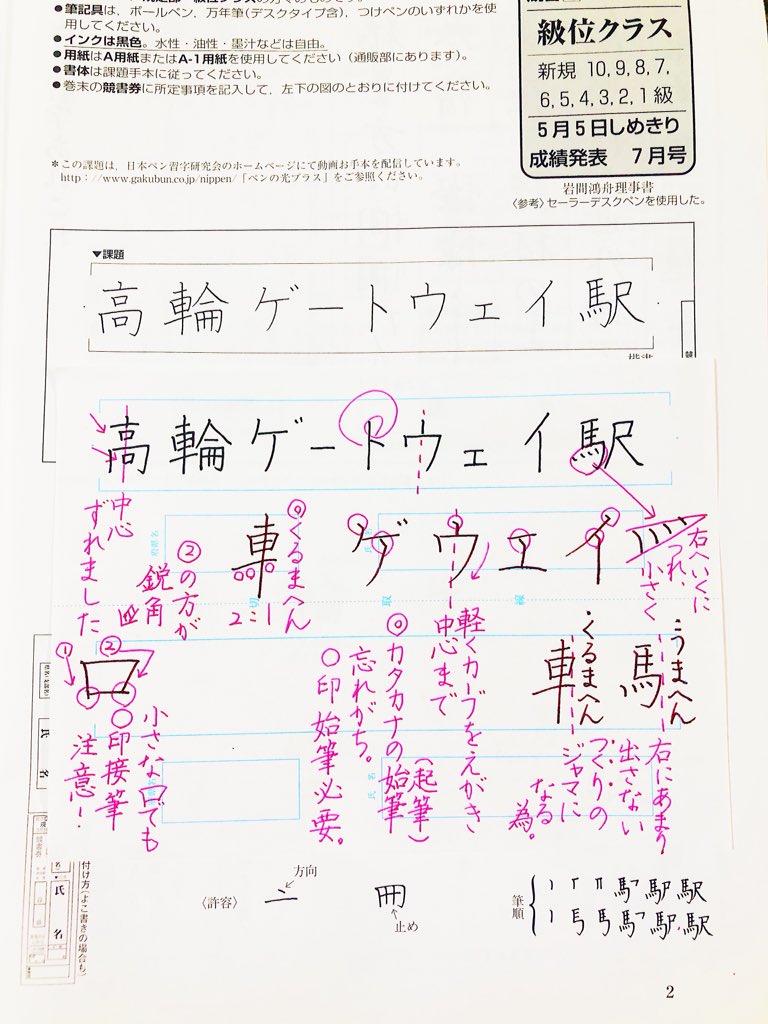 ●筆記具は、ボールペン、万年筆(デスクタイプ含)、つけペンのいずれかを使
用してください。
●インクは黒色。水性・油性・墨汁などは自由。
●用紙はA用紙またはA-1用紙を使用してください（通販部にあります）。
●書体は課題手本に従ってください。
●巻末の競書券に所定事項を記入して、左下の図のとおりに付けてください。
級位クラス
新規 10,9,8,7,
6,5,4,3,2,1 級
5月5日しめきり
成績発表 7月号
＊この課題は、日本ペン習字研究会のホームページにて動画お手本を配信しています。
http://www.gakubun.co.jp/nippen/「ペンの光プラス」をご参照ください。
岩間鴻舟理事書
〈参考〉セーラーデスクペンを使用した。
▼課題
高輪ゲートウェイ駅
高輪ゲートウェイ駅
右へいくに
つれ、
小さく
イ
エ
ウ
ゲ
車
◎くるまへん
2:1
②の方が
鋭角
中心
ずれました
切
取
線
・うまへん
馬
右にあまり
出さない
・くるまへん
車
つくりの
ジャマに
なる
為。
軽くカーブをえがき
中心まで
◎カタカナの始筆
(起筆)
忘れがち。
○印始筆必要。
①
②
小さな口でも
○印接筆
注意!
氏
名
氏
名
付け方(よこ書きの場合も)
〈許容〉
方向
止め
筆順
馬 駅 駅
馬 駅 駅
2